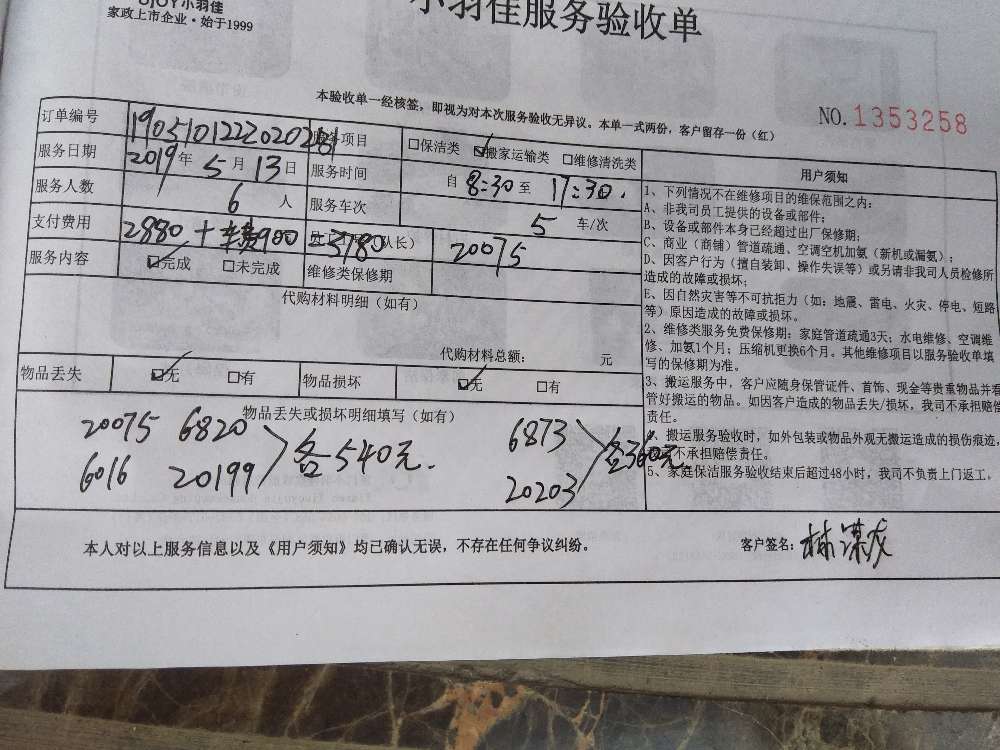 JOY小羽佳
家政上市企业·始于1999
小羽佳服务验收单
本验收单一经核签，即视为对本次服务验收无异议。本单一式两份，客户留存一份（红）
NO.1353258
订单编号
服务项目 □保洁类 ☑搬家运输类 □维修清洗类
服务日期 2019年5月13日
服务时间 自8:30至17:30.
服务人数 6人
服务车次 5车/次
支付费用 2880+车费900=3780
队长） 20075
服务内容 ☑完成 □未完成
维修类保修期
代购材料明细（如有）
代购材料总额： 元
物品丢失 ☑无 □有
物品损坏 ☑无 □有
物品丢失或损坏明细填写（如有）
20075 6820
6016 20199
各540元.
6873
20203
各360元
用户须知
1、下列情况不在维修项目的维保范围之内：
A、非我司员工提供的设备或部件；
B、设备或部件本身已经超过出厂保修期；
C、商业（商铺）管道疏通、空调空机加氨（新机或漏氨）；
D、因客户行为（擅自装卸、操作失误等）或另请非我司人员检修所
造成的故障或损坏；
E、因自然灾害等不可抗拒力（如：地震、雷电、火灾、停电、短路
等）原因造成的故障或损坏。
2、维修类服务免费保修期：家庭管道疏通3天；水电维修、空调维
修、加氨1个月；压缩机更换6个月。其他维修项目以服务验收单填
写的保修期为准。
3、搬运服务中，客户应随身保管证件、首饰、现金等贵重物品并看
管好搬运的物品。如因客户造成的物品丢失/损坏，我司不承担赔偿
责任。
、搬运服务验收时，如外包装或物品外观无搬运造成的损伤痕迹，
不承担赔偿责任。
5、家庭保洁服务验收结束后超过48小时，我司不负责上门返工。
本人对以上服务信息以及《用户须知》均已确认无误，不存在任何争议纠纷。
客户签名：林谋友